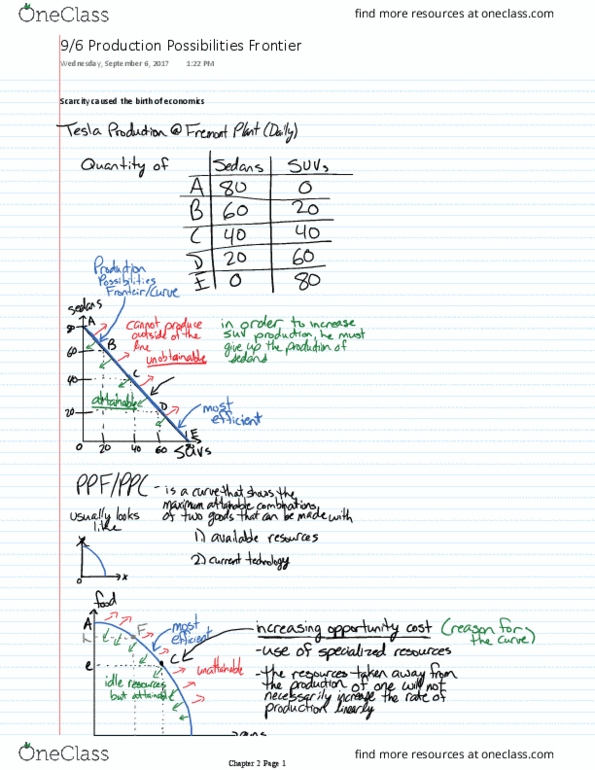 OneClass
find more resources at oneclass.com
9/6 Production Possibilities Frontier
Wednesday, September 6, 2017 1:22 PM
Scarcity caused the birth of economics
Tesla Production @ Fremont Plant (Daily)
Quantity of Sedans SUVs
A 80 0
B 60 20
C 40 40
D 20 60
E 0 80
Production
Possibilities
Fronteir/Curve
sedans
80
60
40
20
0 20 40 60 80
SUVs
A
B
C
D
E
cannot produce
outside of the
line
unobtainable
attainable
most
efficient
in order to increase
SUV production, he must
give up the production of
sedans
PPF/PPC - is a curve that shows the
maximum attainable combinations
of two goods that can be made with
1) available resources
2) current technology
usually looks
like
x
0
food
A
F
most
efficient
C
e
idle resources
but attainable
unattainable
increasing opportunity cost (reason for
the curve)
-use of specialized resources
-the resources taken away from
the production of one will not
necessarily increase the rate of
production linearly
OneClass
Chapter 2 Page 1
find more resources at oneclass.com